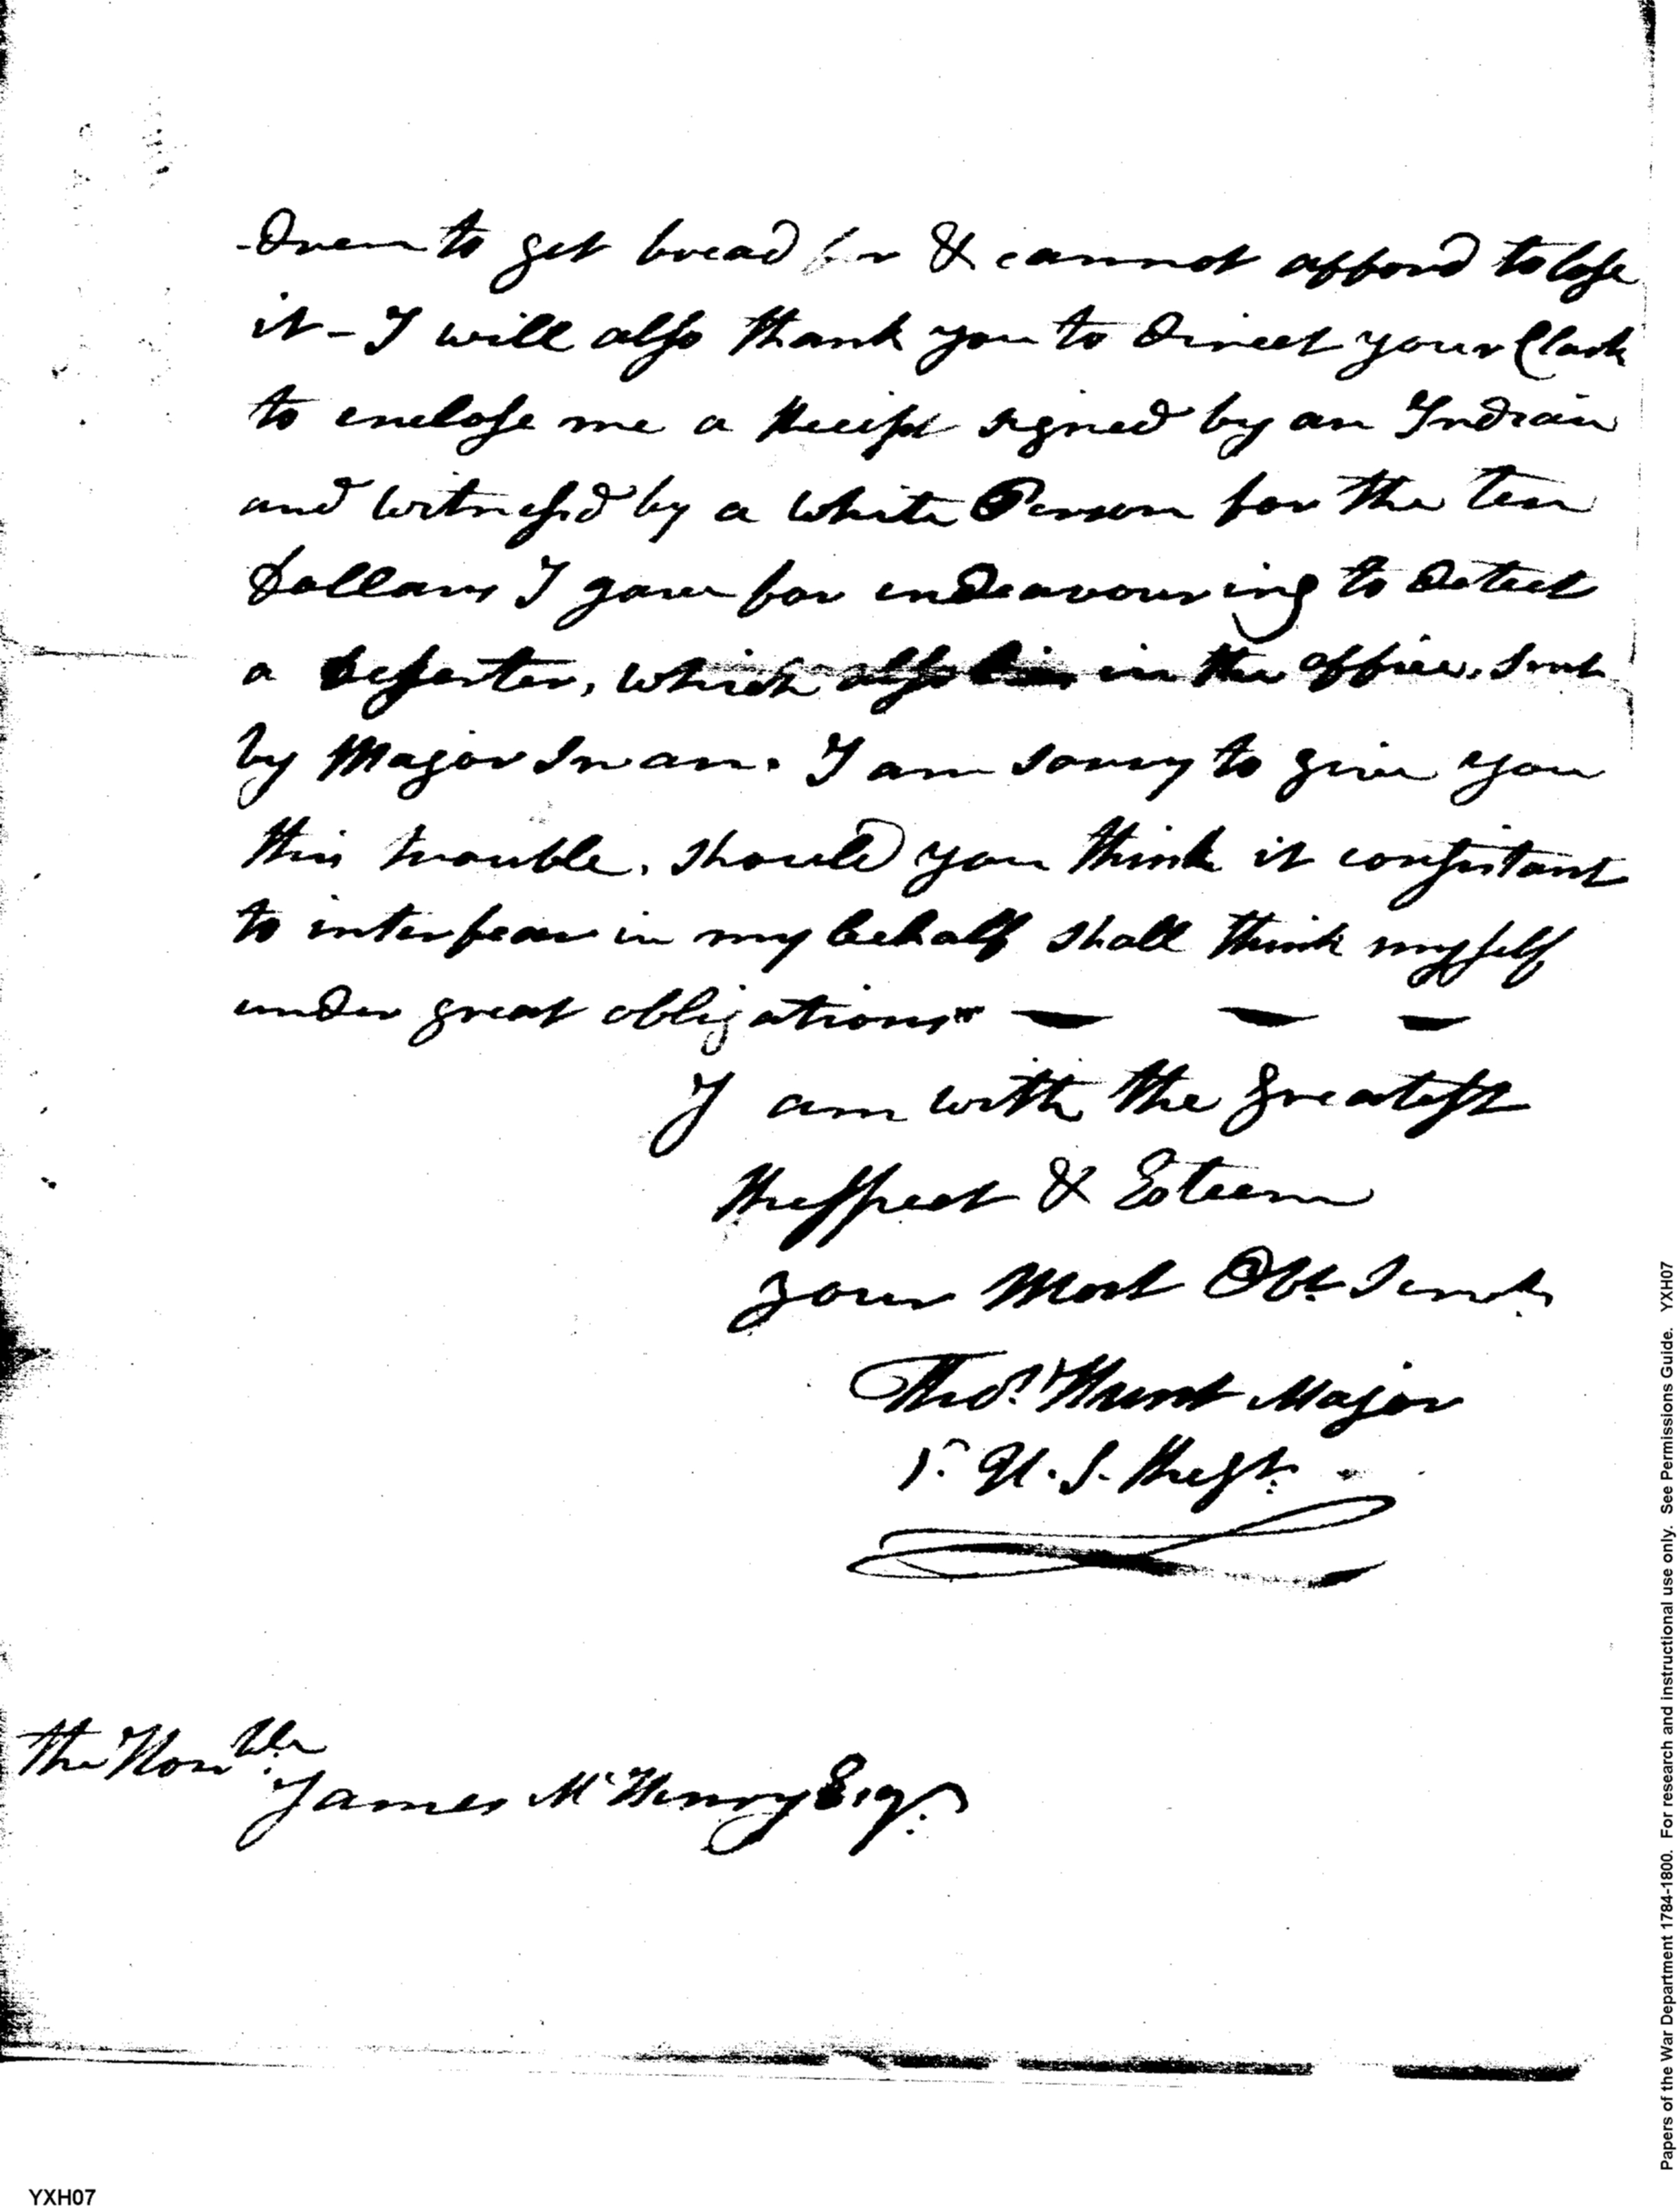 -dren to get bread for & cannot afford to lose
it - I will also thank you to direct your Clark
to enclose me a Receipt signed by an Indian
and witnessed by a white Person for the ten
Dollars I gave for endeavouring to detect
a deserter, which also lies in the office, sent
by Major Swan. I am sorry to give you
this trouble, should you think it consistant
to interfear in my behalf shall think myself
under great obligations" — — —
I am with the greatest
Respect & Esteem
your Most Obt Servt.
Thos. Hunt Major
1. U. S. Regt.
The Honble
James McHenry Esqr.
Papers of the War Department 1784-1800. For research and instructional use only. See Permissions Guide. YXH07
YXH07